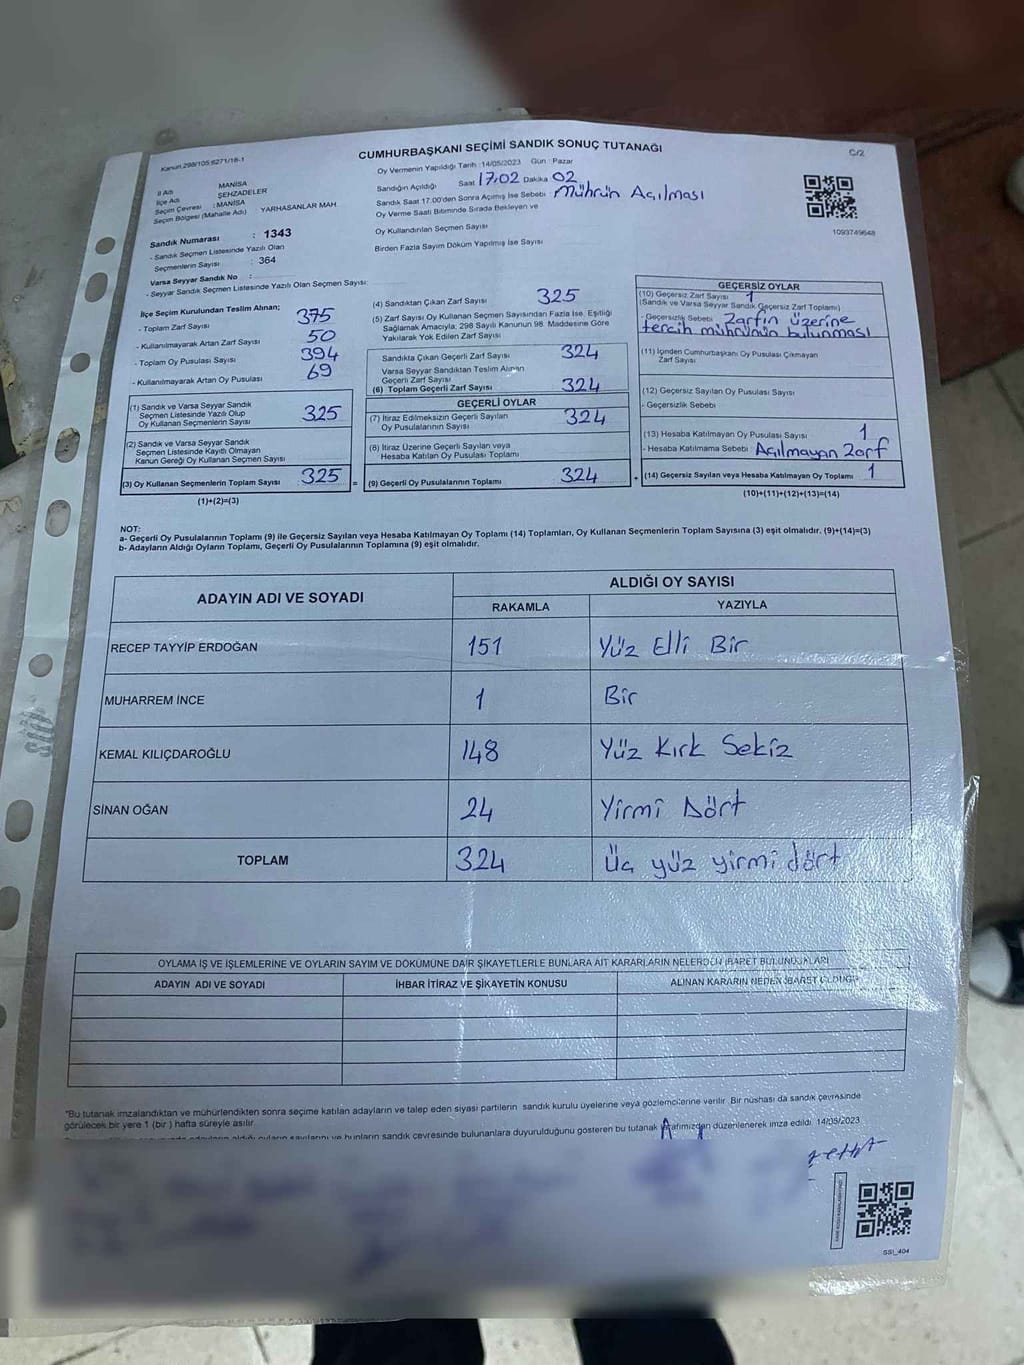 Kanun:298/105:6271/18-1
CUMHURBAŞKANI SEÇİMİ SANDIK SONUÇ TUTANAĞI
C/2
İl Adı MANİSA
İlçe Adı ŞEHZADELER
Seçim Çevresi : MANİSA
Seçim Bölgesi (Mahalle Adı) YARHASANLAR MAH
Sandık Numarası : 1343
- Sandık Seçmen Listesinde Yazılı Olan
Seçmenlerin Sayısı : 364
Varsa Seyyar Sandık No :
- Seyyar Sandık Seçmen Listesinde Yazılı Olan Seçmen Sayısı:
Oy Vermenin Yapıldığı Tarih :14/05/2023 Gün : Pazar
Sandığın Açıldığı Saat 17,02 Dakika 02
Sandık Saat 17.00'den Sonra Açımış İse Sebebi Mührün Açılması
Oy Verme Saati Bitiminde Sırada Bekleyen ve
Oy Kullandırılan Seçmen Sayısı
Birden Fazla Sayım Döküm Yapılmış İse Sayısı
1093749648
İlçe Seçim Kurulundan Teslim Alınan;
- Toplam Zarf Sayısı 375
- Kullanılmayarak Artan Zarf Sayısı 50
- Toplam Oy Pusulası Sayısı 394
- Kullanılmayarak Artan Oy Pusulası 69
(1) Sandık ve Varsa Seyyar Sandık
Seçmen Listesinde Yazılı Olup
Oy Kullanan Seçmenlerin Sayısı 325
(2) Sandık ve Varsa Seyyar Sandık
Seçmen Listesinde Kayıtlı Olmayan
Kanun Gereği Oy Kullanan Seçmen Sayısı
(3) Oy Kullanan Seçmenlerin Toplam Sayısı : 325 =
(1)+(2)=(3)
(4) Sandıktan Çıkan Zarf Sayısı 325
(5) Zarf Sayısı Oy Kullanan Seçmen Sayısından Fazla İse, Eşitliği
Sağlamak Amacıyla; 298 Sayılı Kanunun 98. Maddesine Göre
Yakılarak Yok Edilen Zarf Sayısı
Sandıkta Çıkan Geçerli Zarf Sayısı 324
Varsa Seyyar Sandıktan Teslim Alınan
Geçerli Zarf Sayısı
(6) Toplam Geçerli Zarf Sayısı 324
GEÇERLİ OYLAR
(7) İtiraz Edilmeksizin Geçerli Sayılan
Oy Pusulalarının Sayısı 324
(8) İtiraz Üzerine Geçerli Sayılan veya
Hesaba Katılan Oy Pusulası Toplamı
(9) Geçerli Oy Pusulalarının Toplamı 324 +
GEÇERSİZ OYLAR
(10) Geçersiz Zarf Sayısı 1
(Sandık ve Varsa Seyyar Sandık Geçersiz Zarf Toplamı)
- Geçersizlik Sebebi Zarfın üzerine
tercih mührünün bulunması
(11) İçinden Cumhurbaşkanı Oy Pusulası Çıkmayan
Zarf Sayısı
(12) Geçersiz Sayılan Oy Pusulası Sayısı
- Geçersizlik Sebebi
(13) Hesaba Katılmayan Oy Pusulası Sayısı 1
- Hesaba Katılmama Sebebi Açılmayan Zarf
(14) Geçersiz Sayılan veya Hesaba Katılmayan Oy Toplamı 1
(10)+(11)+(12)+(13)=(14)
NOT:
a- Geçerli Oy Pusulalarının Toplamı (9) ile Geçersiz Sayılan veya Hesaba Katılmayan Oy Toplamı (14) Toplamları, Oy Kullanan Seçmenlerin Toplam Sayısına (3) eşit olmalıdır. (9)+(14)=(3)
b- Adayların Aldığı Oyların Toplamı, Geçerli Oy Pusulalarının Toplamına (9) eşit olmalıdır.
ADAYIN ADI VE SOYADI
ALDIĞI OY SAYISI
RAKAMLA YAZIYLA
RECEP TAYYİP ERDOĞAN 151 Yüz Elli Bir
MUHARREM İNCE 1 Bir
KEMAL KILIÇDAROĞLU 148 Yüz Kırk Sekiz
SİNAN OĞAN 24 Yirmi Dört
TOPLAM 324 Üç yüz yirmi dört
OYLAMA İŞ VE İŞLEMLERİNE VE OYLARIN SAYIM VE DÖKÜMÜNE DAİR ŞİKAYETLERLE BUNLARA AİT KARARLARIN NELERDEN İBARET BULUNDUKLARI
ADAYIN ADI VE SOYADI İHBAR İTİRAZ VE ŞİKAYETİN KONUSU ALINAN KARARIN NEDEN İBARET OLDUĞU
*Bu tutanak imzalandıktan ve mühürlendikten sonra seçime katılan adayların ve talep eden siyasi partilerin sandık kurulu üyelerine veya gözlemcilerine verilir. Bir nüshası da sandık çevresinde
görülecek bir yere 1 (bir) hafta süreyle asılır.
oyların sayılarını ve bunların sandık çevresinde bulunanlara duyurulduğunu gösteren bu tutanak tarafımızdan düzenlenerek imza edildi. 14/05/2023
SSI_404